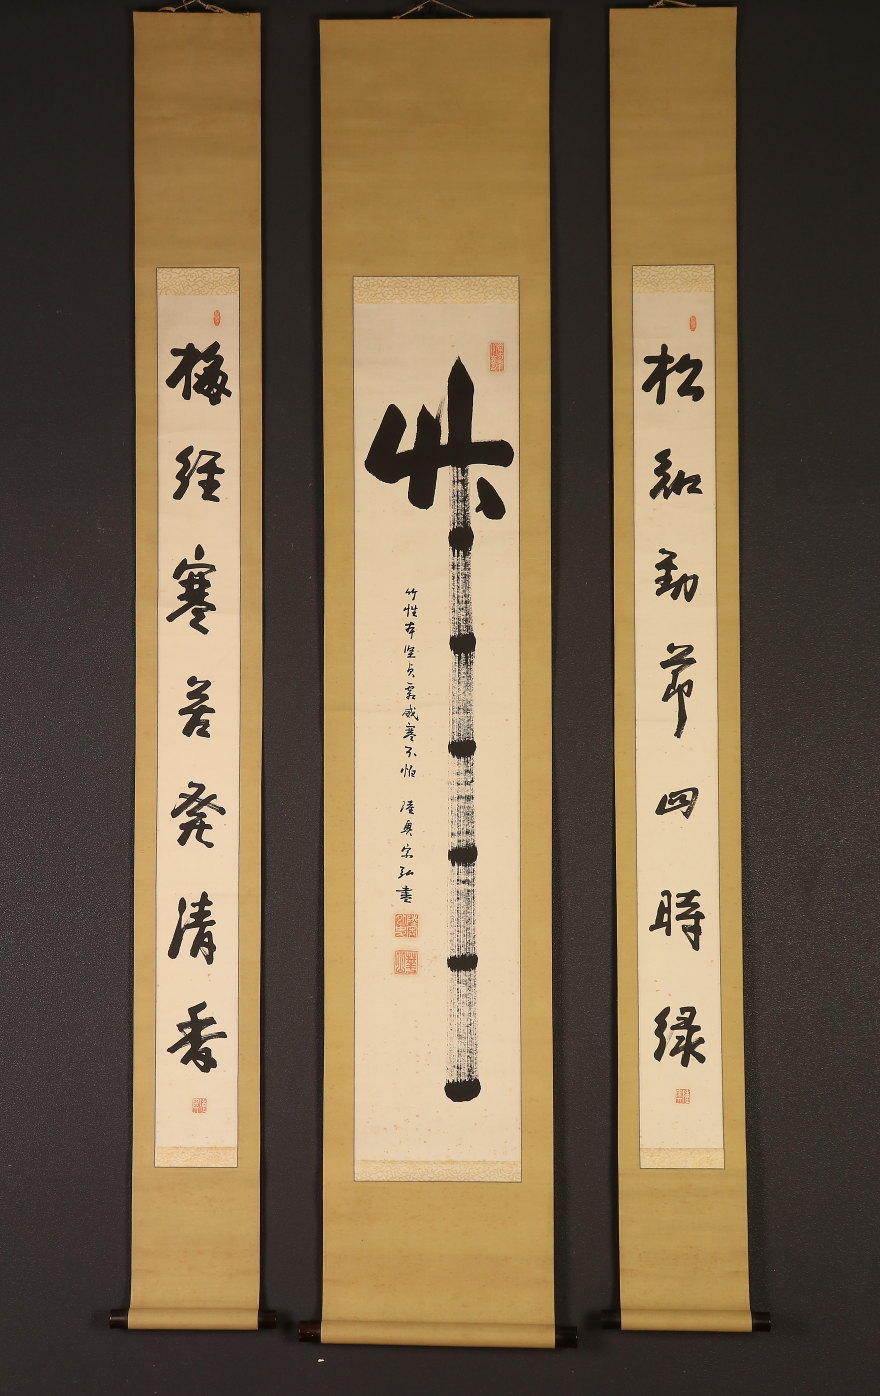 松知勁節四時緑
竹
竹性本坚貞霜威寒不怕 陸奥宗弘書
梅経寒苦発清香